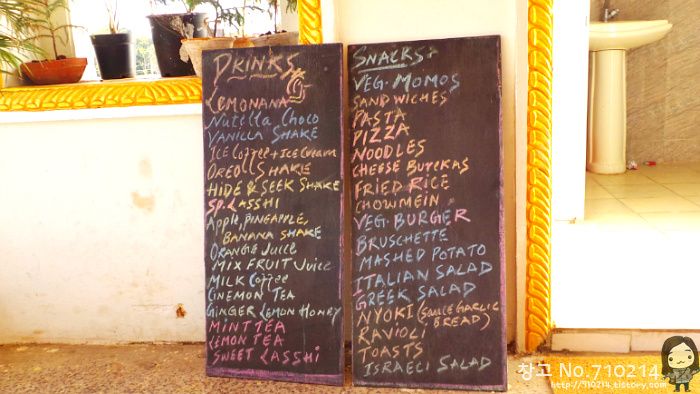 DRINKS
LEMONANA
Nutella, Choco
VANILLA SHAKE
ICE Coffee + ICE Cream
OREOLLS SHAKE
HIDE & SEEK SHAKE
SP. LASSHI
Apple, PINEAPPLE,
BANANA SHAKE
ORANGE Juice
MIX FRUIT Juice
MILK Coffee
CINEMON TEA
GINGER LEMON HONEY
MINT TEA
LEMON TEA
SWEET LASSHI
SNACKS
VEG. MOMOS
SANDWICHES
PASTA
PIZZA
NOODLES
CHEESE BUREKAS
FRIED RICE
CHOWMEIN
VEG. BURGER
BRUSCHETTE
MASHED POTATO
ITALIAN SALAD
GREEK SALAD
NYOKI (SAUCE GARLIC
& BREAD)
RAVIOLI
TOASTS
ISRAELI SALAD
창고 No.710214
http://710214.tistory.com